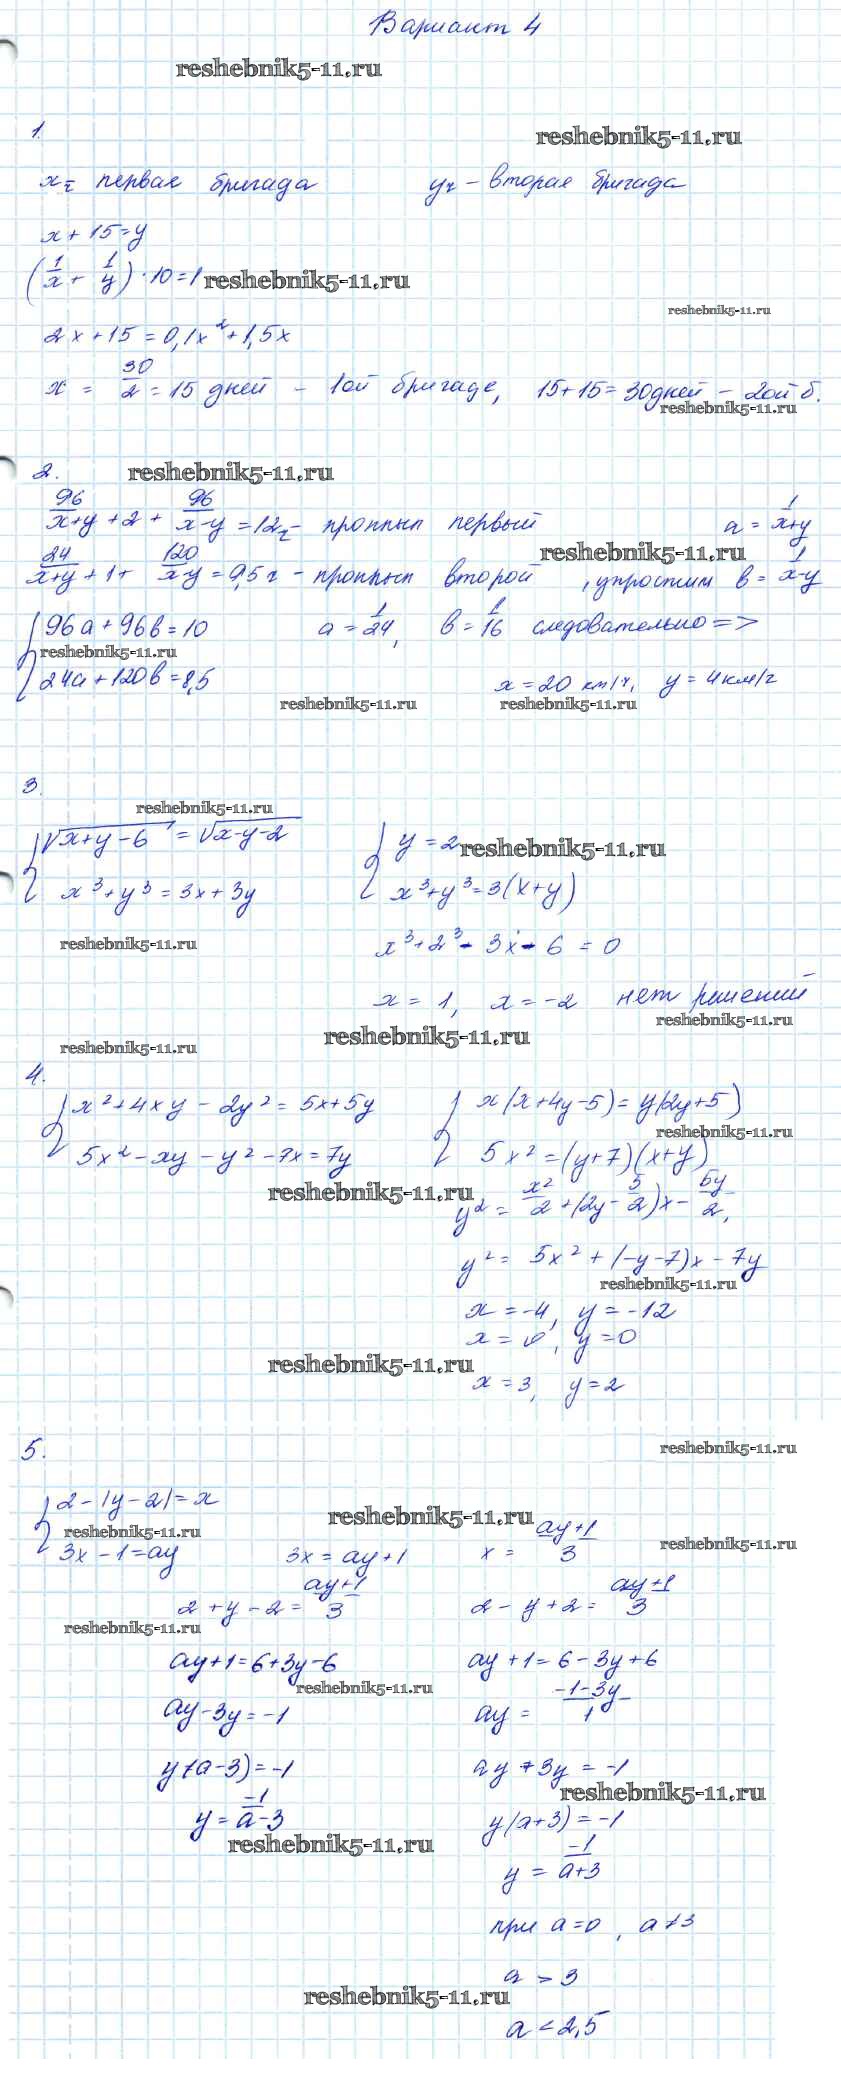 Вариант 4
reshebnik5-11.ru
1.
reshebnik5-11.ru
x - первая бригада y - вторая бригада
x + 15 = y
(1/x + 1/y) · 10 = 1 reshebnik5-11.ru
reshebnik5-11.ru
2x + 15 = 0,1x² + 1,5x
x = 30/2 = 15 дней - 1ой бригаде, 15+15 = 30 дней - 2ой б.
reshebnik5-11.ru
2. reshebnik5-11.ru
96/(x+y) + 2 + 96/(x-y) = 12 ч - проплыл первый a = 1/(x+y)
reshebnik5-11.ru
24/(x+y) + 1 + 120/(x-y) = 9,5 ч - проплыл второй, упростим b = 1/(x-y)
96a + 96b = 10 a = 1/24, b = 1/16 следовательно =>
reshebnik5-11.ru
24a + 120b = 8,5 x = 20 км/ч, y = 4 км/ч
reshebnik5-11.ru reshebnik5-11.ru
3.
reshebnik5-11.ru
√(x+y-6) = √(x-y-2) y = 2 reshebnik5-11.ru
x³ + y³ = 3x + 3y x³ + y³ = 3(x+y)
reshebnik5-11.ru x³ + 2³ - 3x - 6 = 0
x = 1, x = -2 нет решений
reshebnik5-11.ru
reshebnik5-11.ru reshebnik5-11.ru
4.
x² + 4xy - 2y² = 5x + 5y x(x+4y-5) = y(2y+5)
reshebnik5-11.ru
5x² - xy - y² - 7x = 7y 5x² = (y+7)(x+y)
reshebnik5-11.ru y² = x²/2 + (2y - 5/2)x - 5y/2,
y² = 5x² + (-y-7)x - 7y
reshebnik5-11.ru
x = -4, y = -12
x = 0, y = 0
reshebnik5-11.ru
x = 3, y = 2
5. reshebnik5-11.ru
2 - |y-2| = x
reshebnik5-11.ru
reshebnik5-11.ru reshebnik5-11.ru
3x - 1 = ay 3x = ay + 1 x = (ay+1)/3
2 + y - 2 = (ay+1)/3 2 - y + 2 = (ay+1)/3
reshebnik5-11.ru
ay + 1 = 6 + 3y - 6 ay + 1 = 6 - 3y + 6
reshebnik5-11.ru
ay - 3y = -1 ay = (-1-3y)/1
y(a-3) = -1 ay + 3y = -1
reshebnik5-11.ru
y = -1/(a-3) y(a+3) = -1
reshebnik5-11.ru
y = -1/(a+3)
при a = 0, a ≠ 3
a > 3
reshebnik5-11.ru
a < 2,5